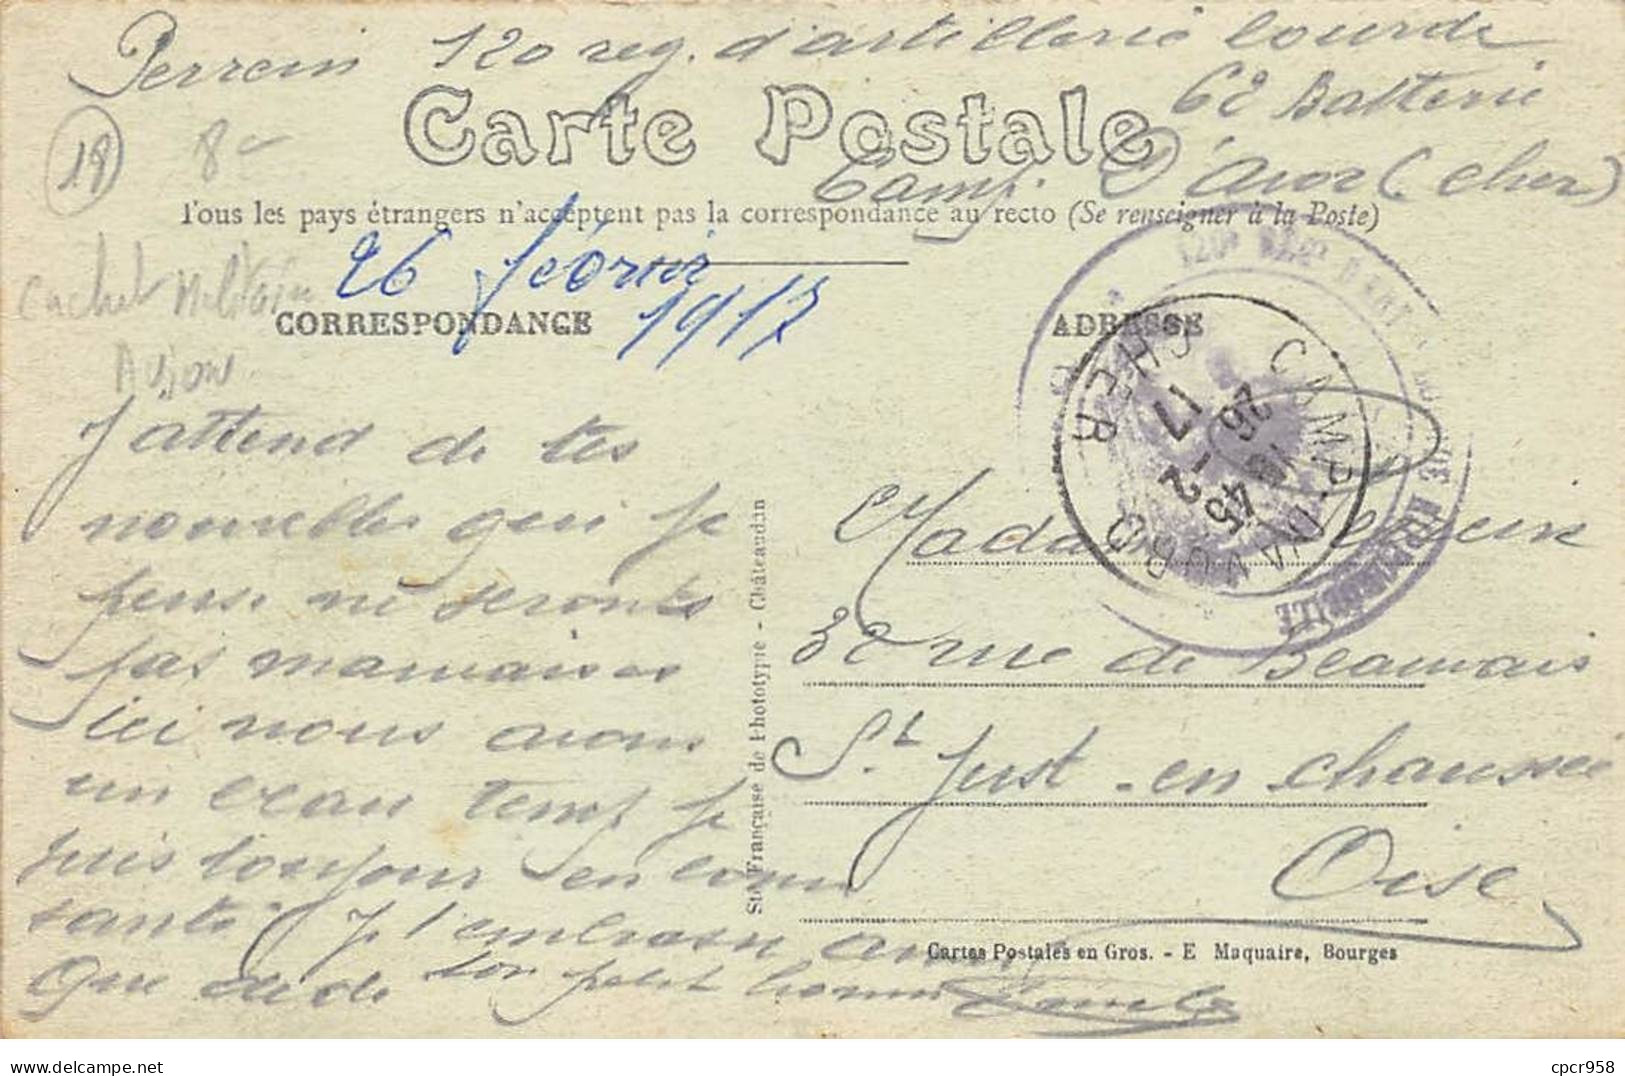 Perrein 120 reg. d'artillerie lourde
6e Batterie
Camp D'avor (Cher)
Carte Postale
18
8-
Tous les pays étrangers n'acceptent pas la correspondance au recto (Se renseigner à la Poste)
26 février
1917
Cachet Militaire
Avion
CORRESPONDANCE
ADRESSE
CAMP D'AVORD
CHER
17 - 2
26
45
J'attend de tes
nouvelles qui je
pense ne seronts
pas mauvaises
ici nous avons
un beau temp je
suis toujour en bonne
santé je t'embrasse ainsi
que dede ton petit homme Emile
Madame Perrein
32 rue de Beauvais
St Just-en-chaussée
Oise
Sté Française de Phototypie - Châteaudun
Cartes Postales en Gros. - E Maquaire, Bourges
delcampe.net
cpcr958